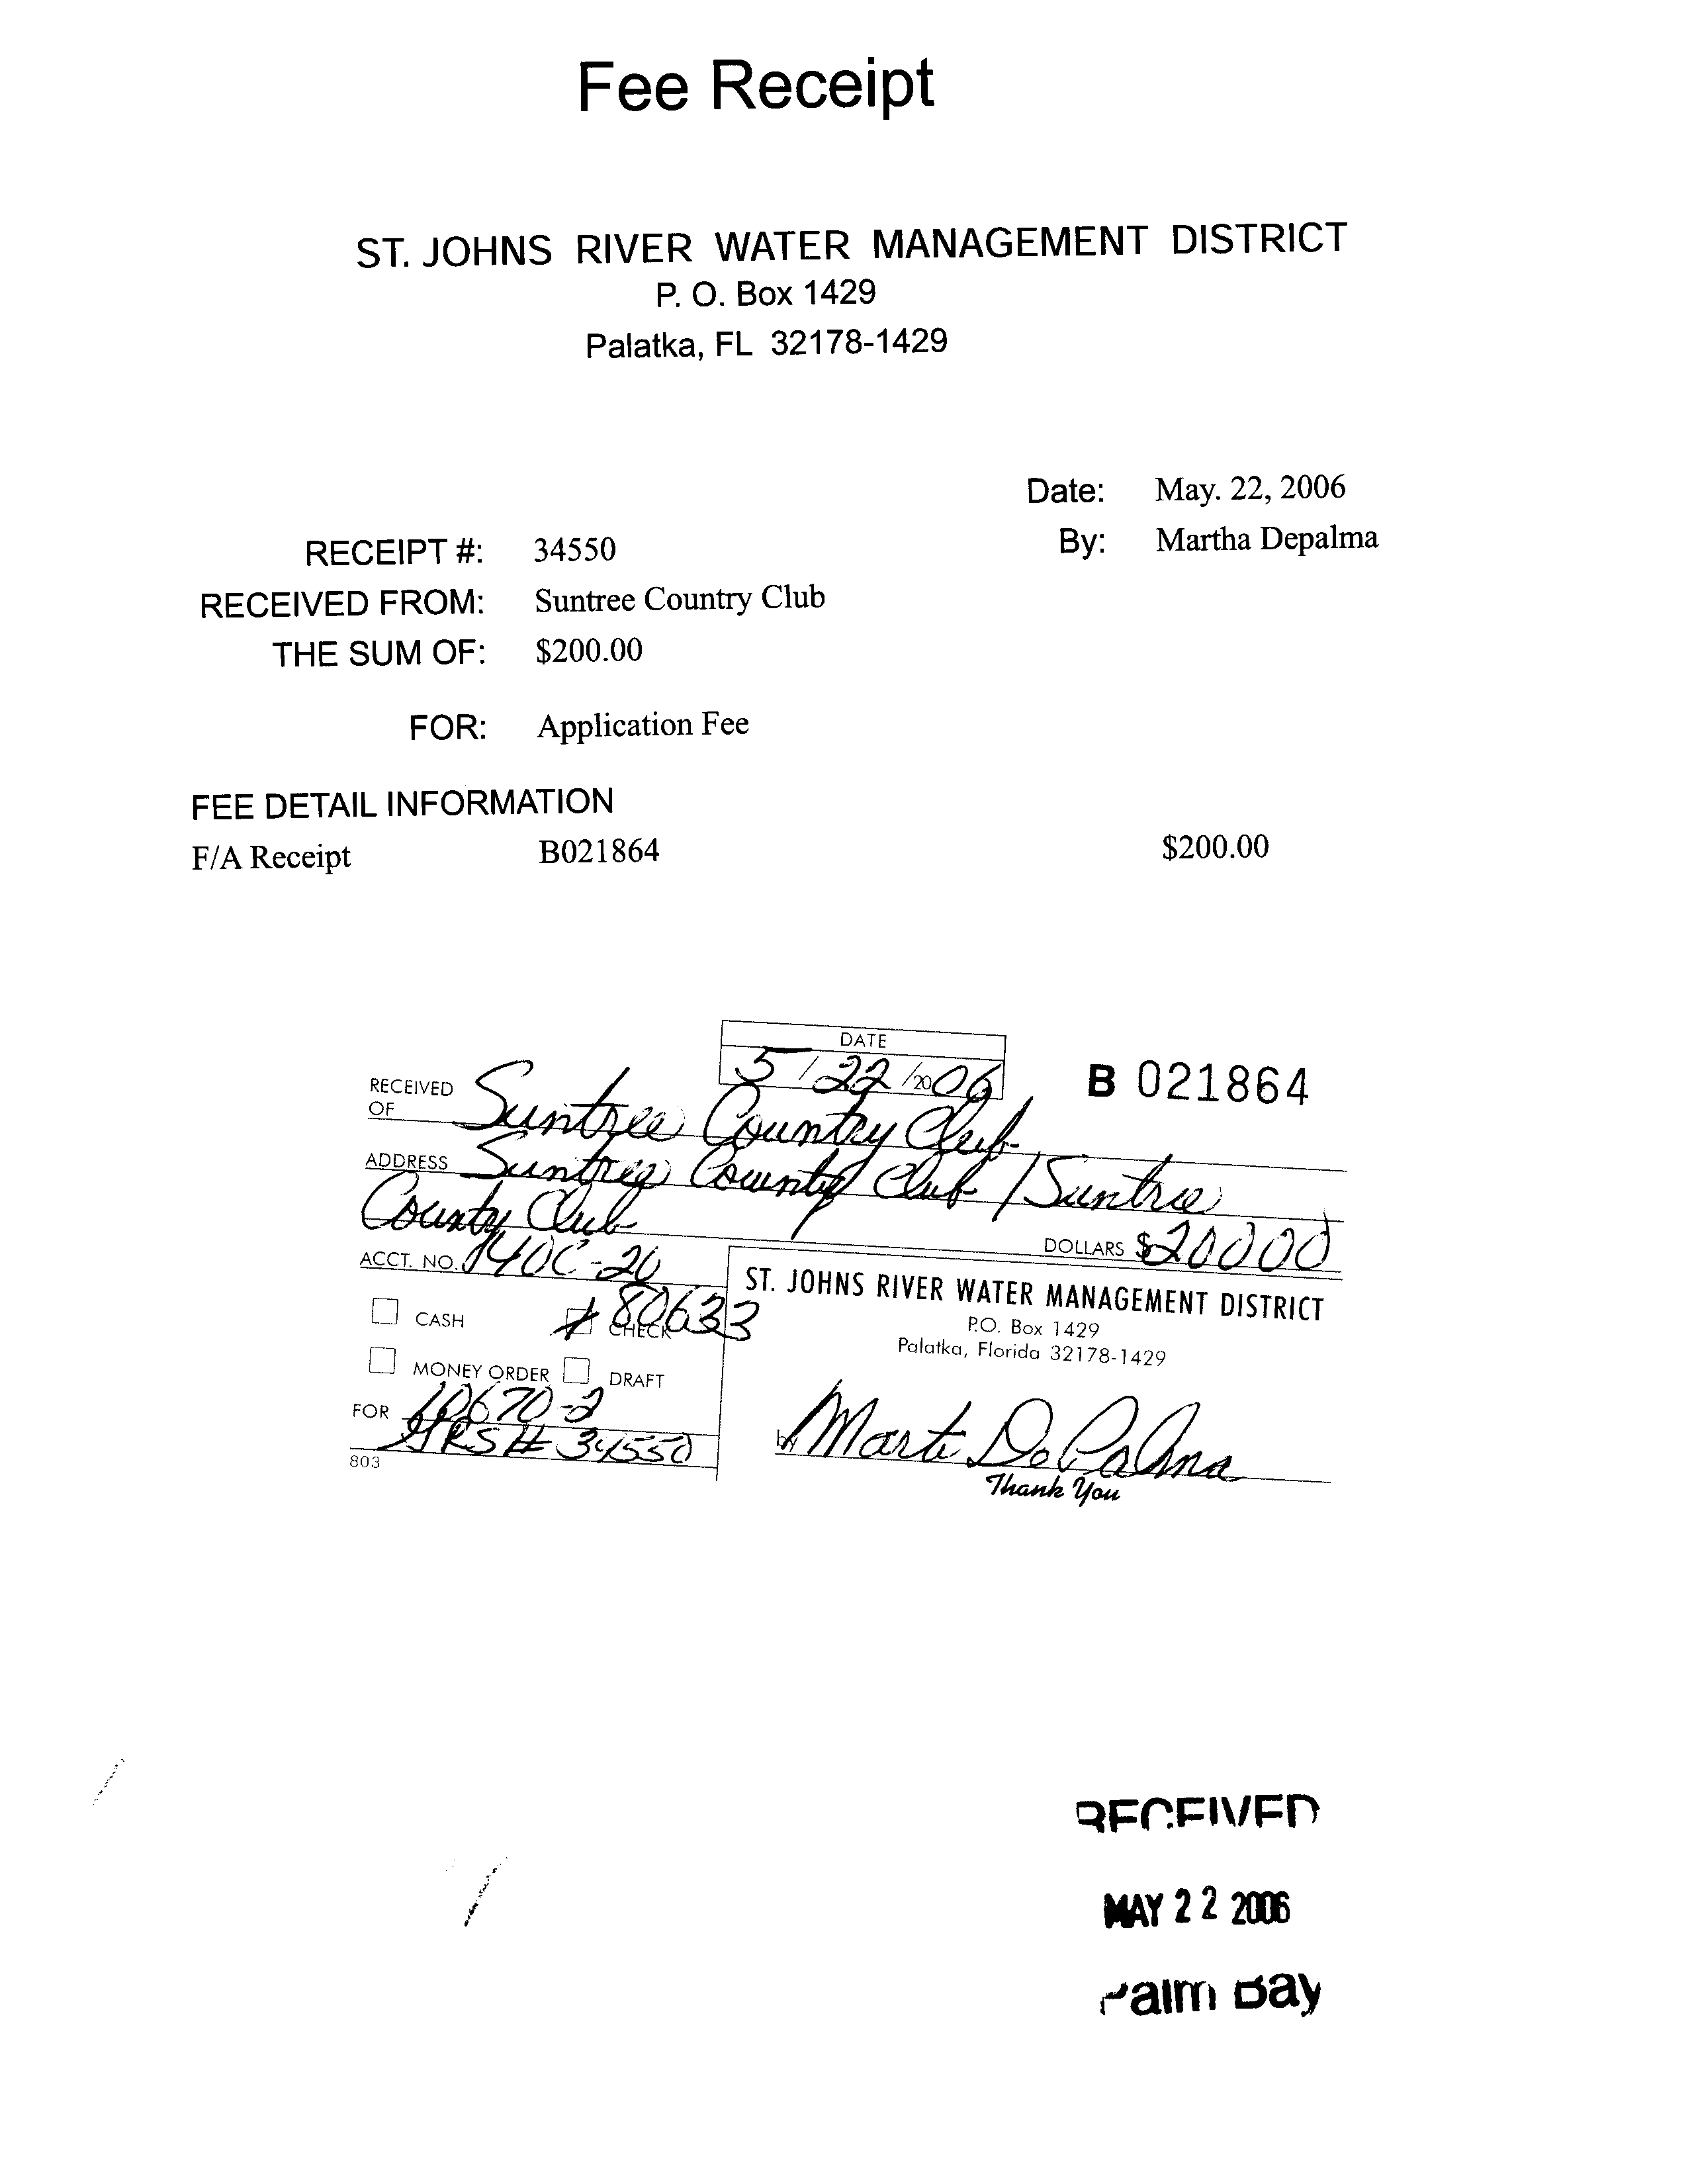 Fee Receipt
ST. JOHNS RIVER WATER MANAGEMENT DISTRICT
P. O. Box 1429
Palatka, FL 32178-1429
Date: May. 22, 2006
By: Martha Depalma
RECEIPT #: 34550
RECEIVED FROM: Suntree Country Club
THE SUM OF: $200.00
FOR: Application Fee
FEE DETAIL INFORMATION
F/A Receipt B021864 $200.00
DATE
5/22/2006
B 021864
RECEIVED OF Suntree Country Club
ADDRESS Suntree County Club / Suntree
County Club
DOLLARS $20000
ACCT. NO. 140C-20
CASH
80633
CHECK
MONEY ORDER
DRAFT
FOR 10670-2
34550
803
ST. JOHNS RIVER WATER MANAGEMENT DISTRICT
P.O. Box 1429
Palatka, Florida 32178-1429
by Marti DePalma
Thank You
RECEIVED
MAY 22 2006
Palm Bay